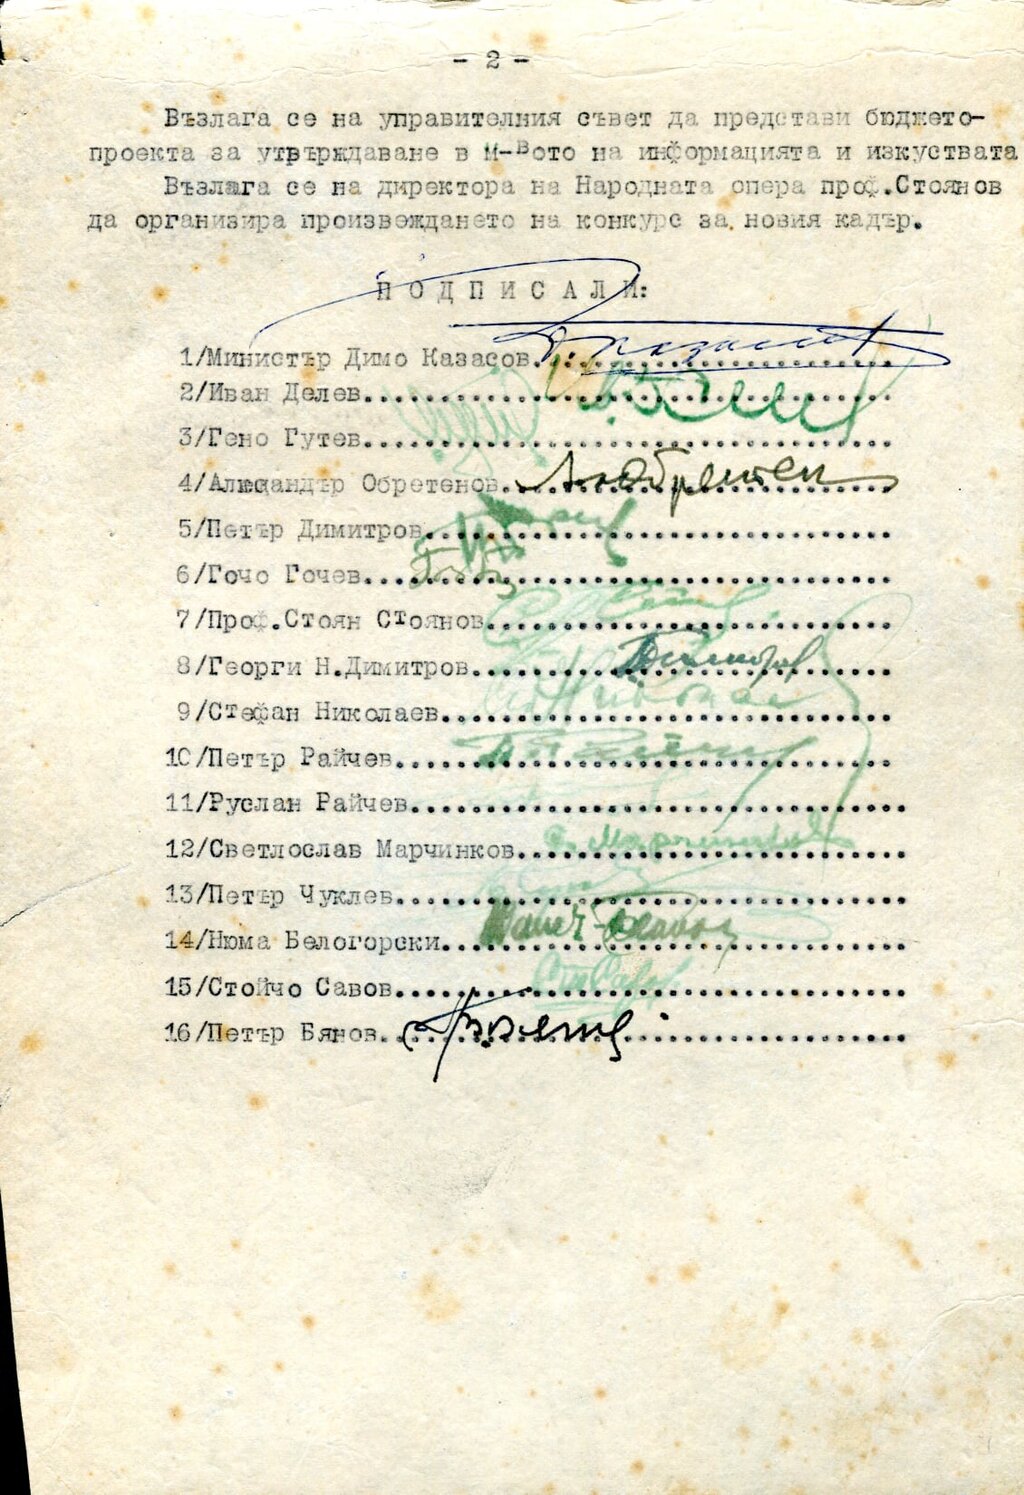 - 2 -
Възлага се на управителния съвет да представи бюджето-
проекта за утвърждаване в м-вото на информацията и изкуствата
Възлага се на директора на Народната опера проф.Стоянов
да организира произвеждането на конкурс за новия кадър.
ПОДПИСАЛИ:
1/Министър Димо Казасов
2/Иван Делев
3/Гено Гутев
4/Александър Обретенов
5/Петър Димитров
6/Гочо Гочев
7/Проф.Стоян Стоянов
8/Георги Н.Димитров
9/Стефан Николаев
10/Петър Райчев
11/Руслан Райчев
12/Светлослав Марчинков
13/Петър Чуклев
14/Нюма Белогорски
15/Стойчо Савов
16/Петър Бянов